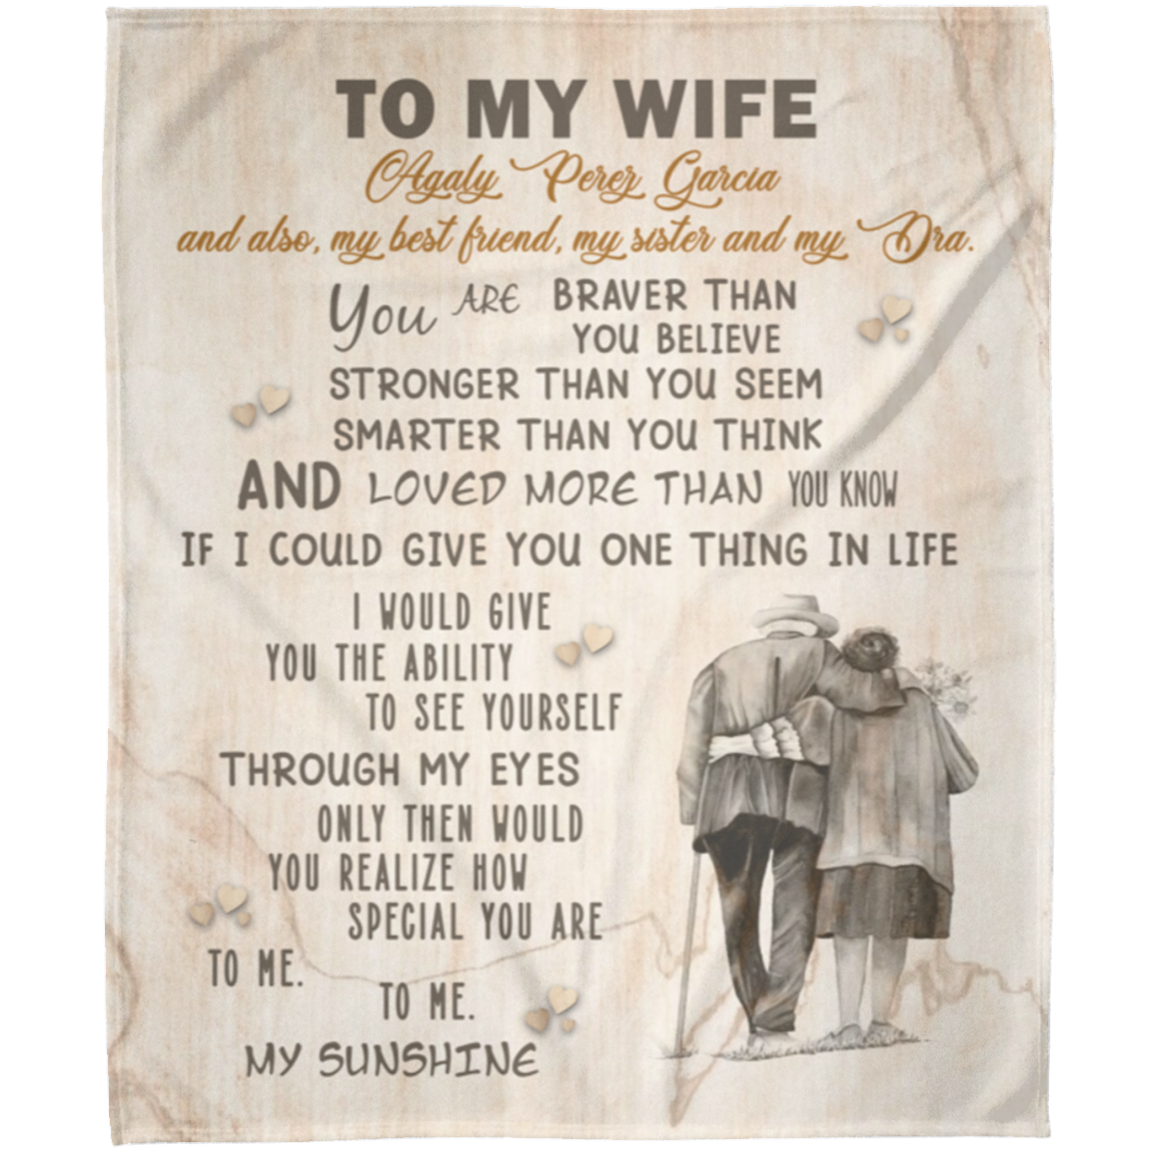 TO MY WIFE
Agaly Perez Garcia
and also, my best friend, my sister and my Dra.
You ARE BRAVER THAN
YOU BELIEVE
STRONGER THAN YOU SEEM
SMARTER THAN YOU THINK
AND LOVED MORE THAN YOU KNOW
IF I COULD GIVE YOU ONE THING IN LIFE
I WOULD GIVE
YOU THE ABILITY
TO SEE YOURSELF
THROUGH MY EYES
ONLY THEN WOULD
YOU REALIZE HOW
SPECIAL YOU ARE
TO ME.
TO ME.
MY SUNSHINE